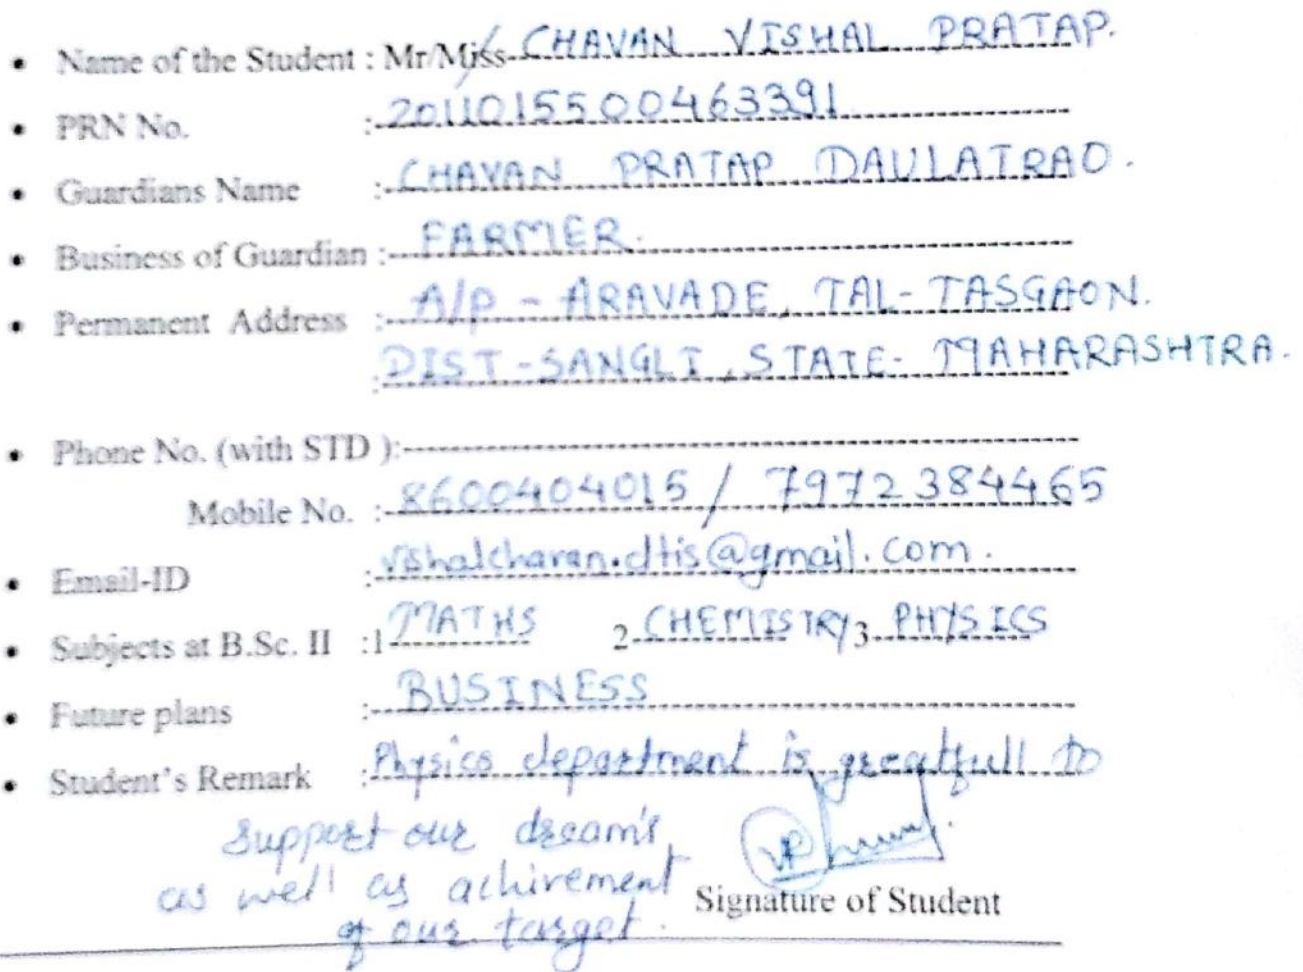 • Name of the Student : Mr/Miss CHAVAN VISHAL PRATAP.
• PRN No. : 2011015500463391
• Guardians Name : CHAVAN PRATAP DAULATRAO.
• Business of Guardian : FARMER.
• Permanent Address : A/P - ARAVADE, TAL- TASGAON.
: DIST - SANGLI, STATE- MAHARASHTRA.
• Phone No. (with STD ):
Mobile No. : 8600404015 / 7972384465
• Email-ID : vishalchavan.dtis@gmail.com.
• Subjects at B.Sc. II :1 MATHS 2 CHEMISTRY 3 PHYSICS
• Future plans : BUSINESS
• Student's Remark : Physics department is greatfull to
support our dream's
as well as achirement
of our target.
Signature of Student